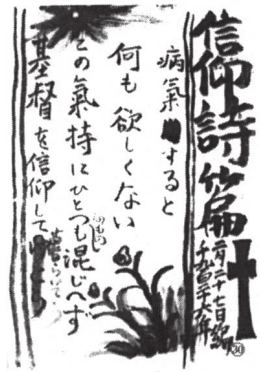 信仰詩篇
二月二十七日編
病氣すると
何も欲しくない
この氣持にひとつも混じへず
のもの
基督を信仰して